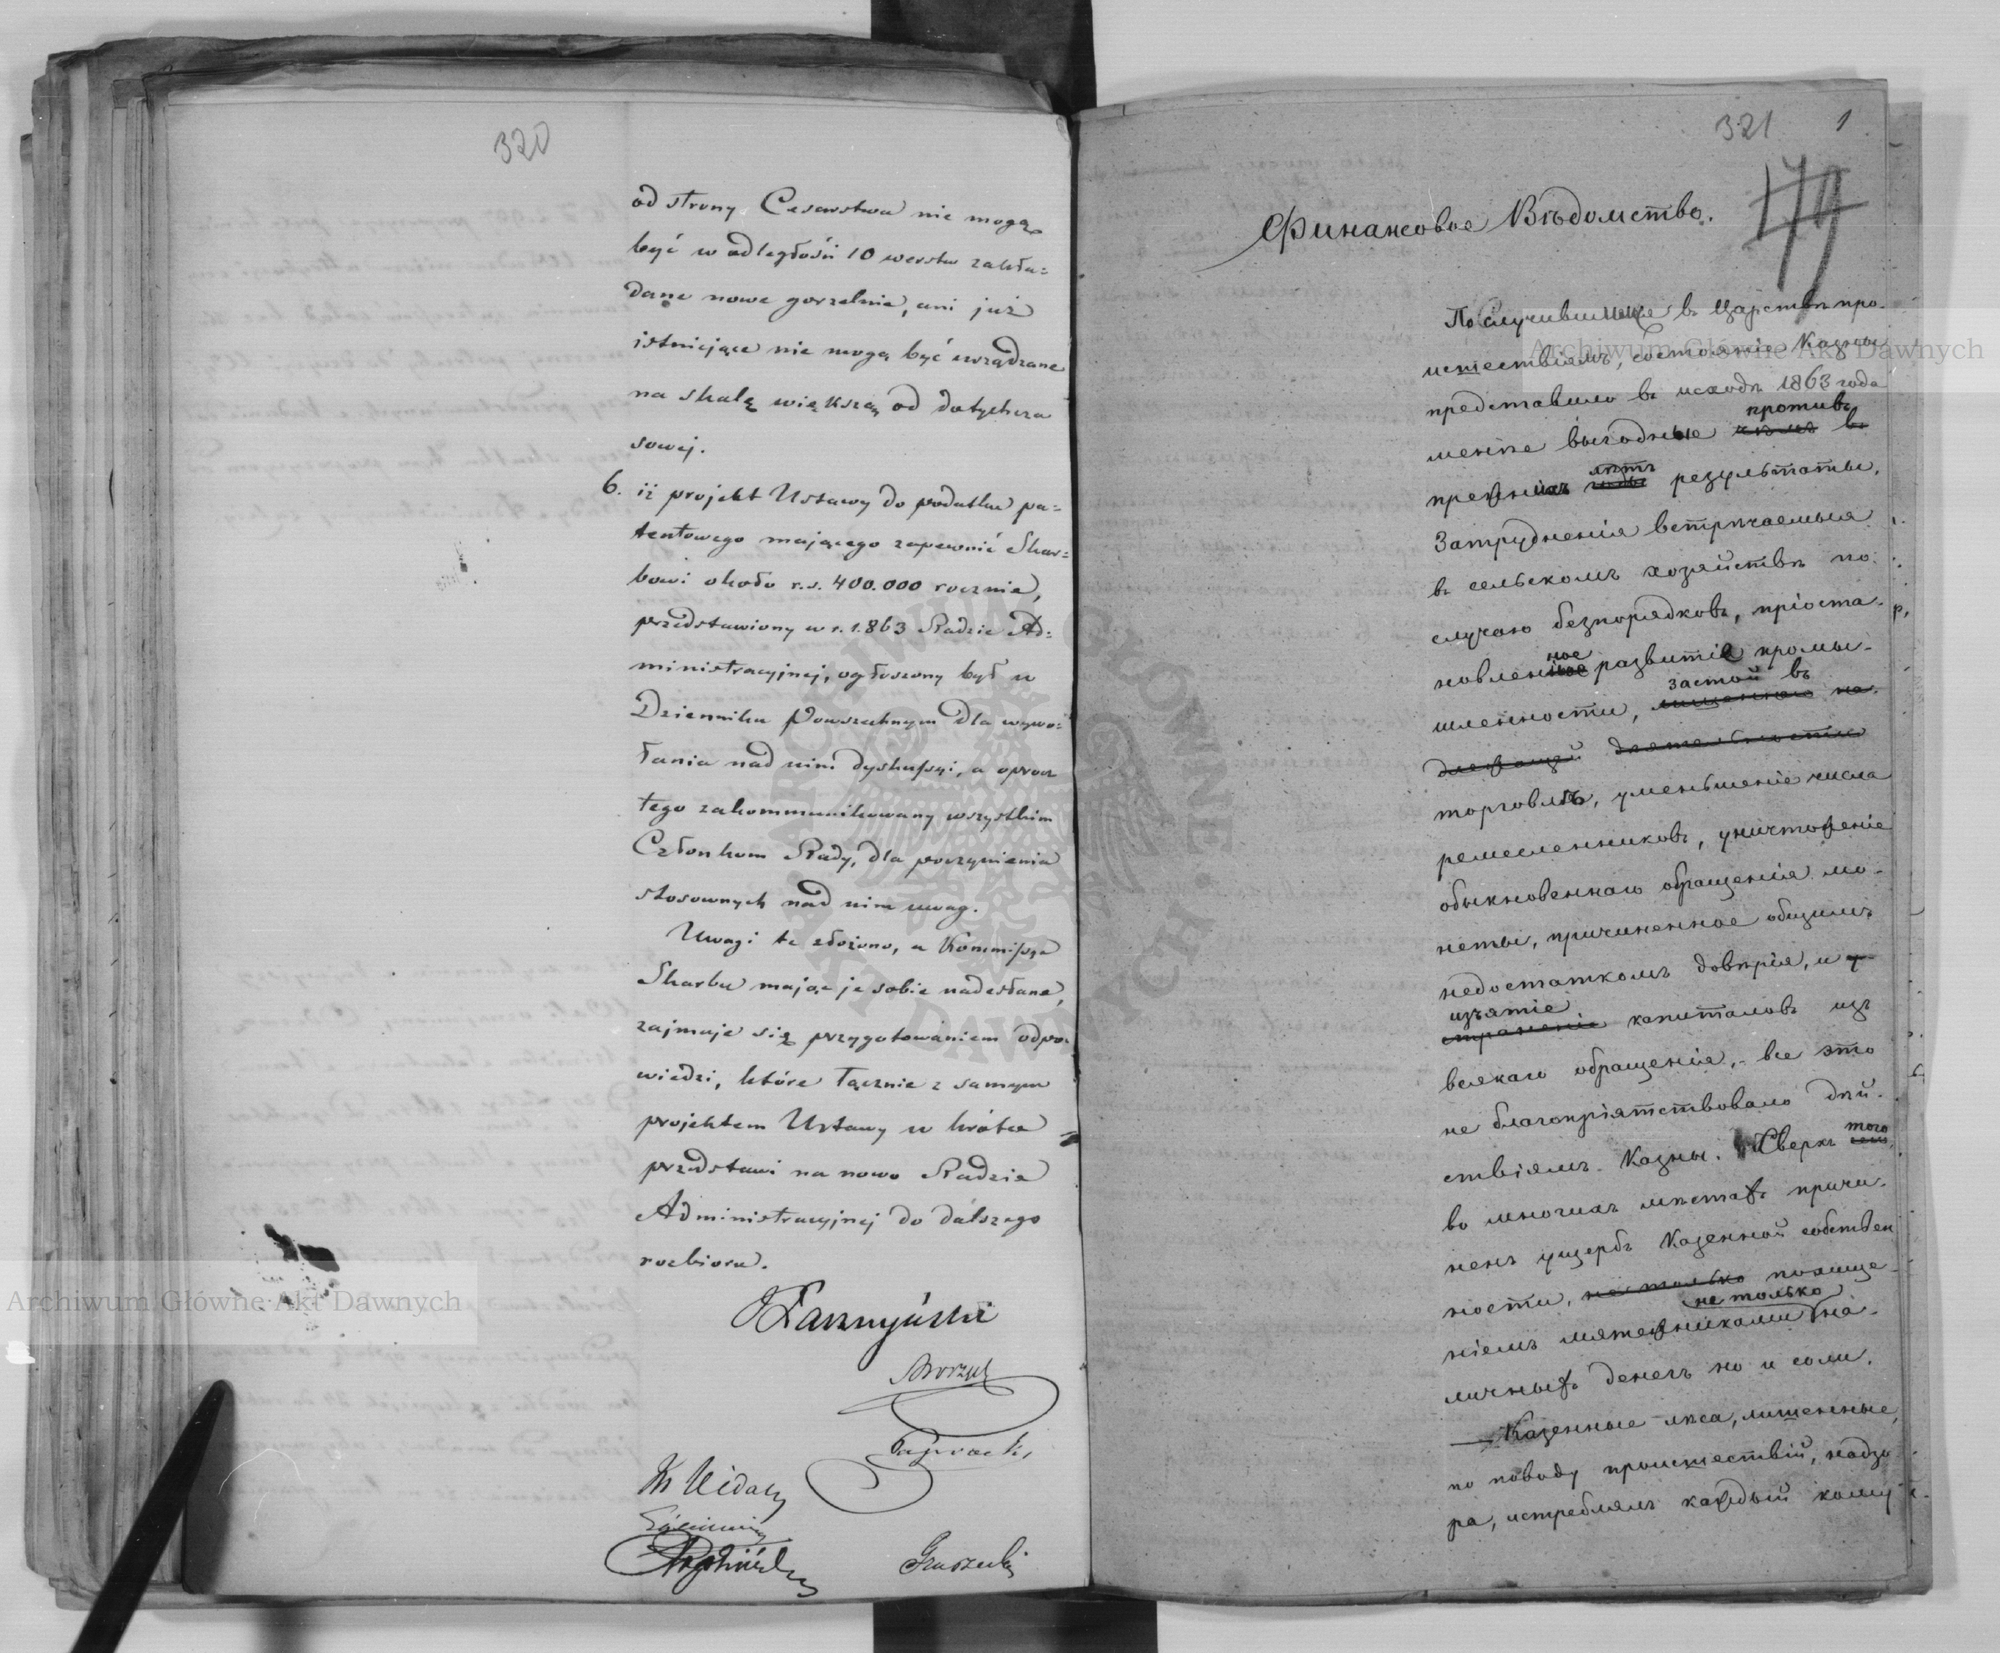 320
od strony Cesarstwa nie mogą
być w odległości 10 werstw zakła=
dane nowe gorzelnie, ani już
istniejące nie mogą być urządzane
na skalę większą od dotychcza
sowej.
6. iż projekt Ustawy do podatku pa=
tentowego mającego zapewnić Skar=
bowi około r.s. 400.000 rocznie,
przedstawiony w r. 1863 Radzie Ad=
ministracyjnej, ogłoszony był w
Dzienniku Powszechnym dla wywo=
łania nad nim dyskussyi, a oprócz
tego zakommunikowany wszystkim
Członkom Rady, dla poczynienia
stosownych nad nim uwag.
Uwagi te złożono, a Kommissya
Skarbu mając je sobie nadesłane,
zajmuje się przygotowaniem odpo=
wiedzi, które łącznie z samym
projektem Ustawy w krótce
przedstawi na nowo Radzie
Administracyjnej do dalszego
rozbioru.
321 1
179
Финансовое Вѣдомство.
По Случившимся въ Царствѣ про-
исшествіямъ, состояніе Казны
представило въ исходѣ 1863 года
противъ
менѣе выгодные чѣмъ въ
лѣтъ
прежнихъ годы результаты.
Затрудненія встрѣчаемыя
въ сельскомъ хозяйствѣ по
случаю безпорядковъ, пріоста-
ное
новленное развитіе промы-
застой въ
шленности, лишенная на-
длежащей дѣятельности
торговлѣ, уменьшеніе числа
ремесленниковъ, уничтоженіе
обыкновеннаго обращенія мо-
неты, причиненное общимъ
недостаткомъ довѣрія, и у-
изъятіе
страненіе капиталовъ изъ
всякаго обращенія, - все это
не благопріятствовало дѣй-
ствіямъ Казны. Сверхъ того
сего,
во многихъ мѣстахъ причи-
ненъ ущербъ Казенной собствен
ности, не только похище-
не только
ніемъ мятежниками на-
личныхъ денегъ но и соли.
— Казенные лѣса, лишенные,
по поводу происшествій, надзо
ра, истреблялъ каждый кому
Archiwum Główne Akt Dawnych
Archiwum Główne Akt Dawnych
ARCHIWUM GŁÓWNE AKT DAWNYCH